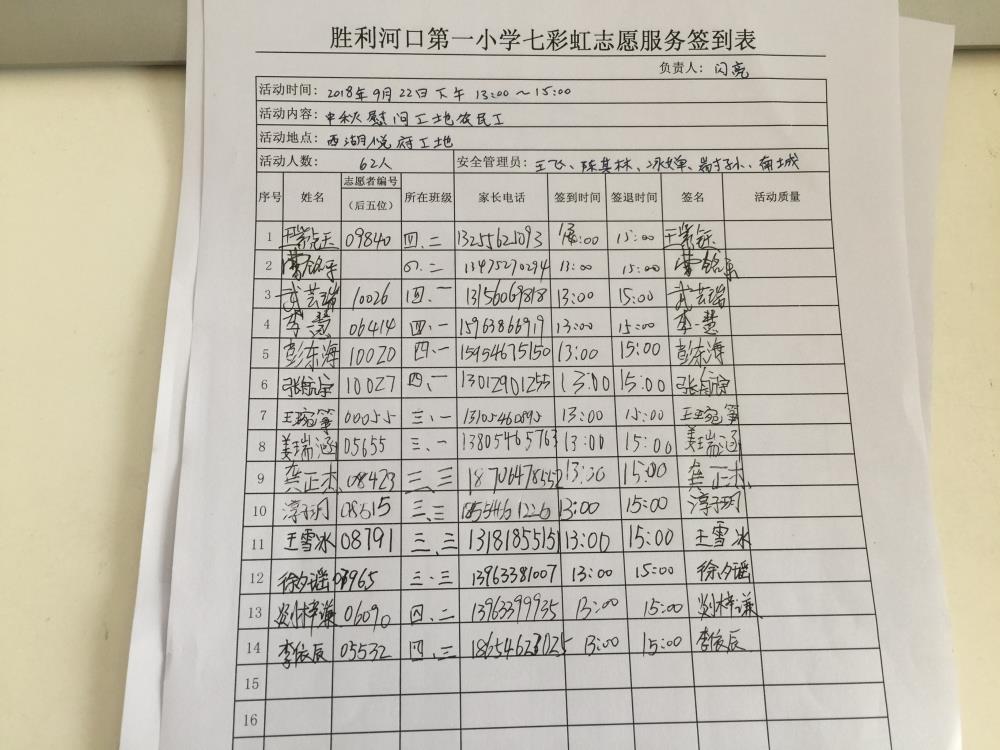 胜利河口第一小学七彩虹志愿服务签到表
负责人：闪亮
活动时间：2018年9月22日下午 13:00～15:00
活动内容：中秋慰问工地农民工
活动地点：西湖悦府工地
活动人数： 62人 安全管理员：王飞、陈其林、
序号 姓名 志愿者编号（后五位） 所在班级 家长电话 签到时间 签退时间 签名 活动质量
1 09840 四、二 13255625093 :00 15:00
2 二 13475270294 13:00 15:00
3 武芸瑞 10026 四、一 13156069818 13:00 15:00 武芸瑞
4 李一慧 06414 四、一 15963866919 13:00 15:00 李一慧
5 彭东海 10020 四、一 15954675150 13:00 15:00 彭东海
6 张航宇 10027 四、一 13012901255 13:00 15:00 张航宇
7 王琬筝 00055 三、一 15:00 王琬筝 13:00
8 姜瑞涵 05655 三、一 13805465763 13:00 15:00 姜瑞涵
9 龚正杰 08423 三、三 18706478552 13:00 15:00 龚正杰
10 淳于玥 08615 三、三 18554612226 13:00 15:00 淳于玥
11 王雪冰 08791 三、三 13181855151 13:00 15:00 王雪冰
12 徐夕瑶 三、三 13963381007 13:00 15:00 徐夕瑶
13 刘梓谦 06090 四、二 13963399935 13:00 15:00 刘梓谦
14 李依辰 05532 四、三 13:00 15:00 李依辰
15
16